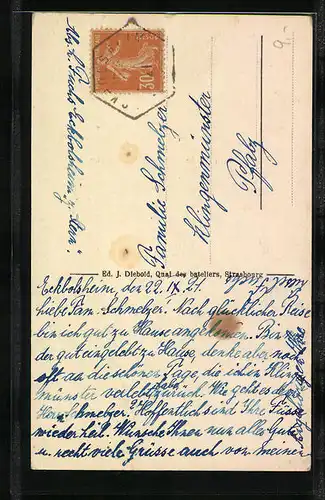 Abs. L. Fuchs Eckbolsheim
Familie Schmelzer
Klingenmünster
Pfalz
30c
9.-
Ed. J. Diebold, Quai des bateliers, Strasbourg
Eckbolsheim, den 22. IX. 21.
Liebe Fam. Schmelzer. Nach glücklicher Reise
bin ich gut zu Hause angekommen. Bin
der gut eingelebt zu Hause, denke aber noch
oft an die schönen Tage, die ich in Kling
münster verlebt zurück. Wie geht es den
Herrn Schmelzer? Hoffentlich sind Ihre Füsse
wieder heil. Wünsche Ihnen nur alles Gute
u. recht viele Grüsse auch von meiner